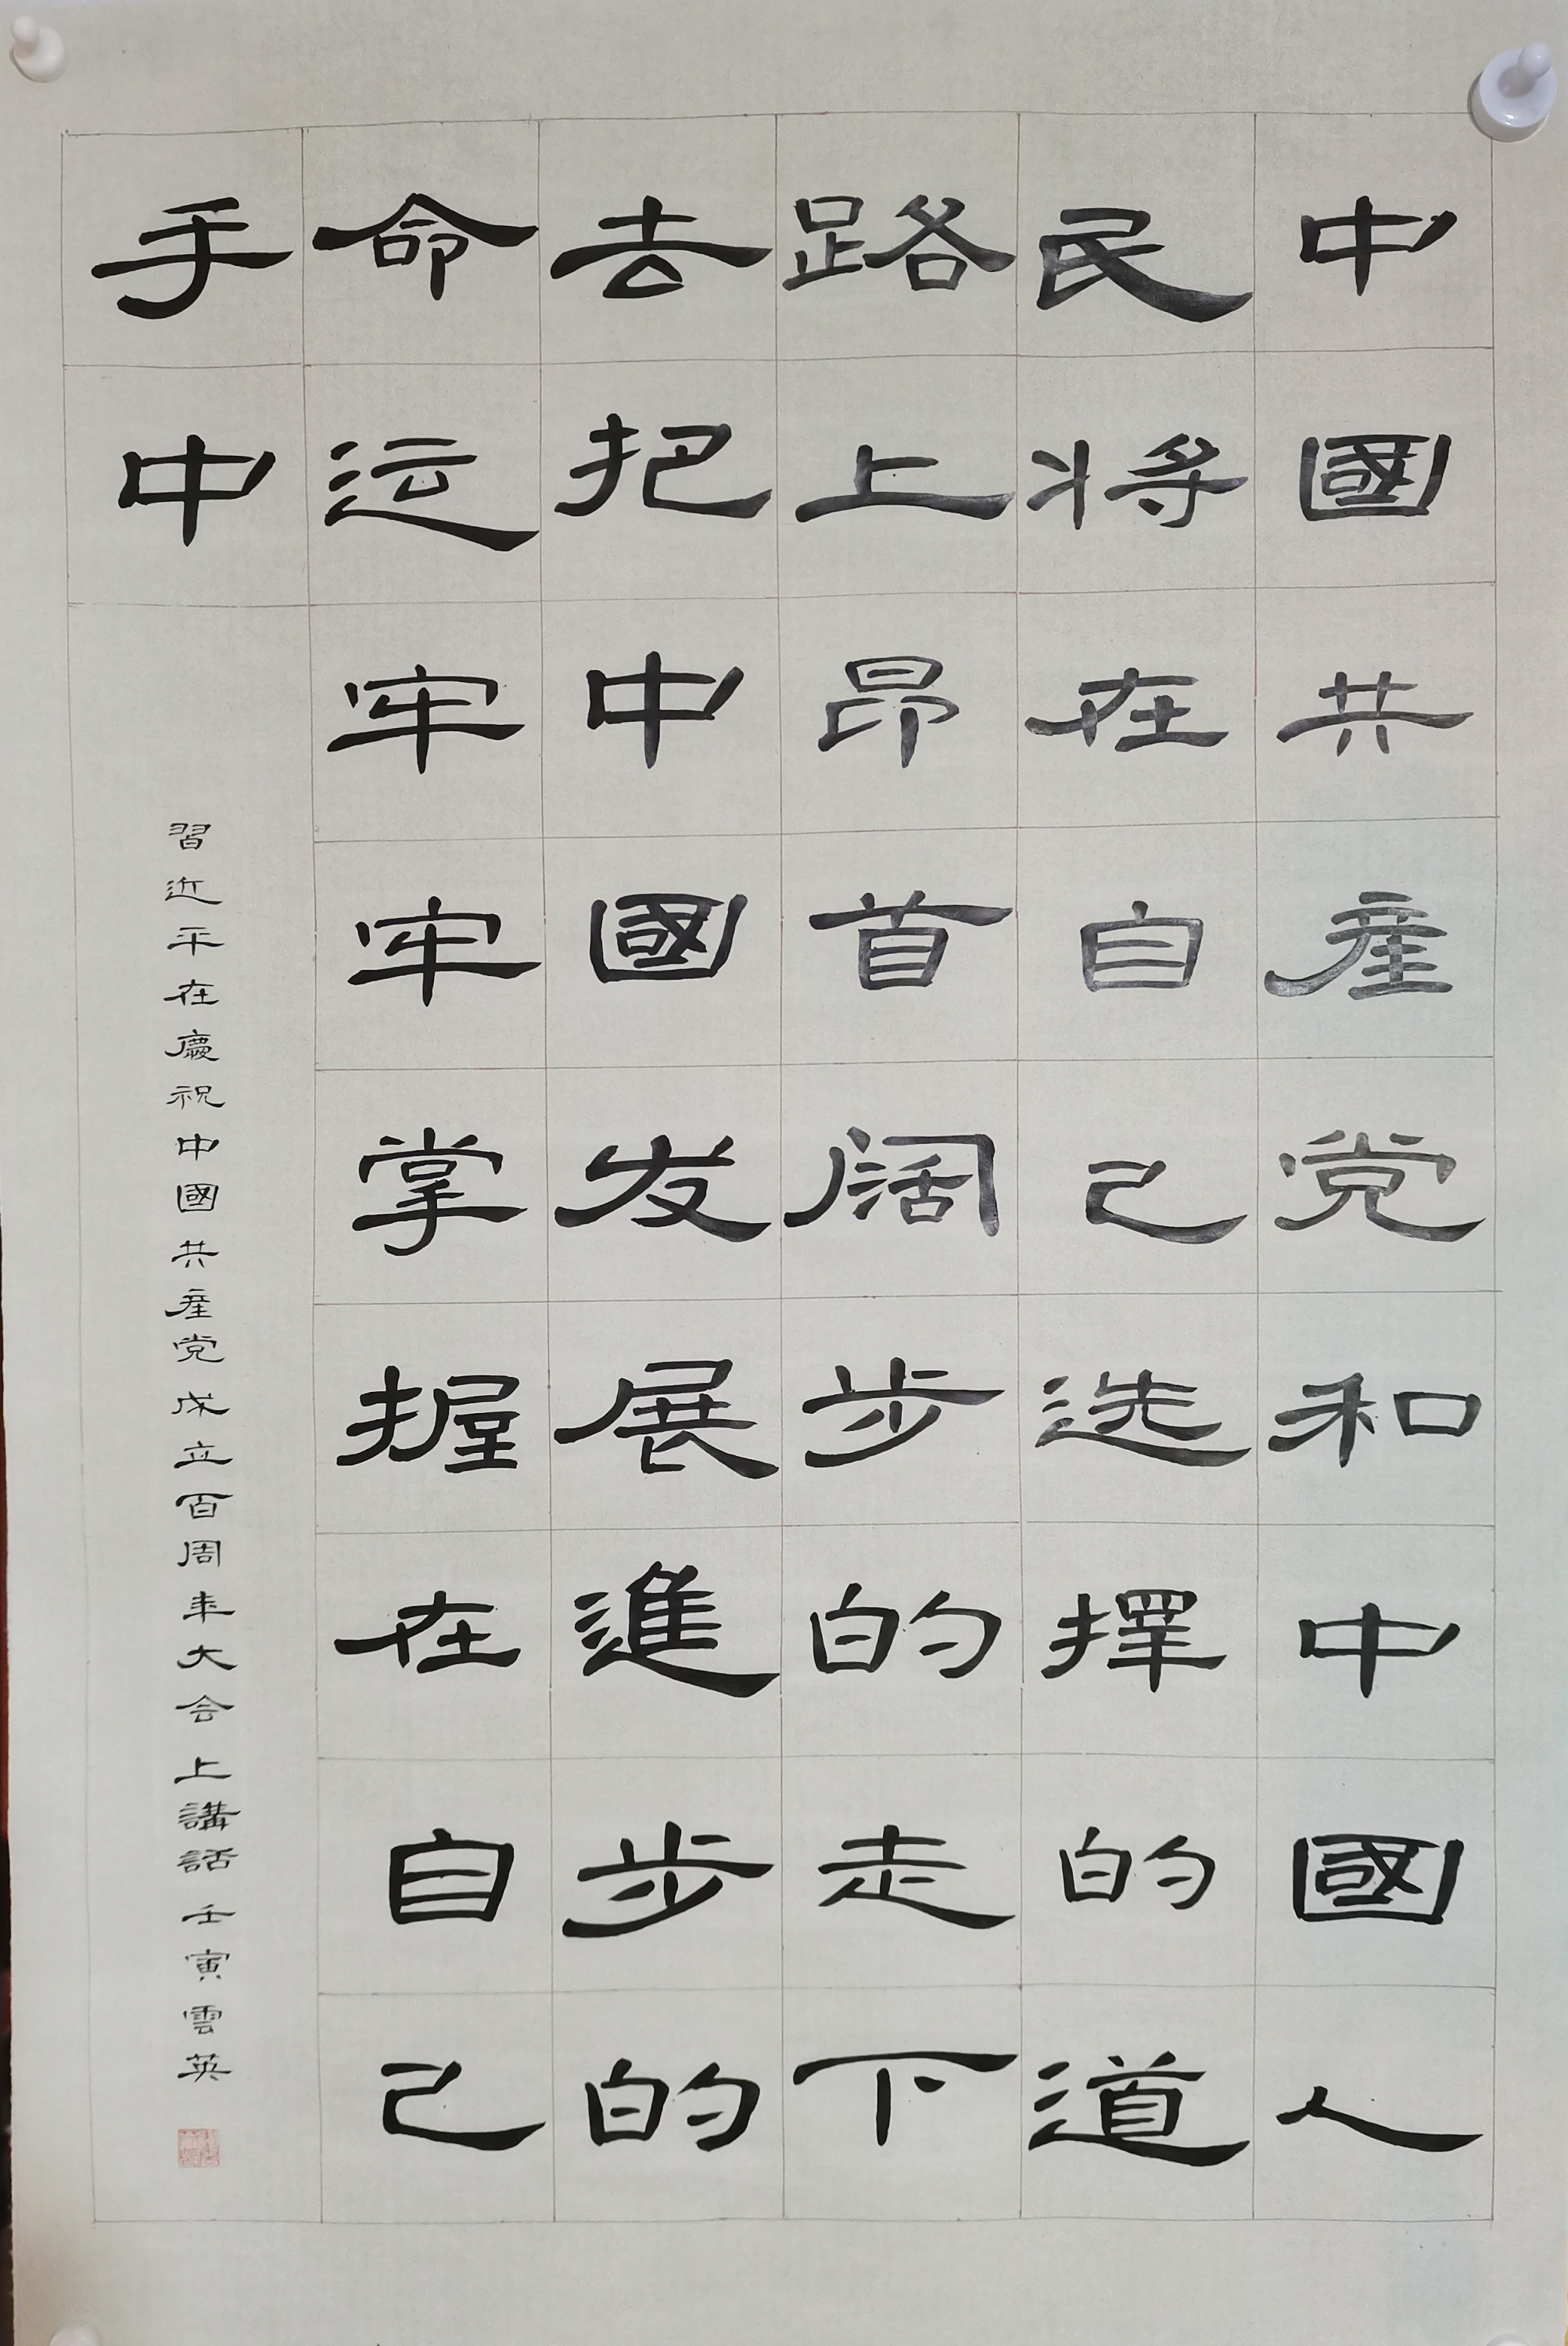 中國共產党和中國人
民将在自己选擇的道
路上昂首阔步的走下
去把中國发展進步的
命运牢牢掌握在自己
手中
習近平在慶祝中國共產党成立百周年大会上講話壬寅雲英